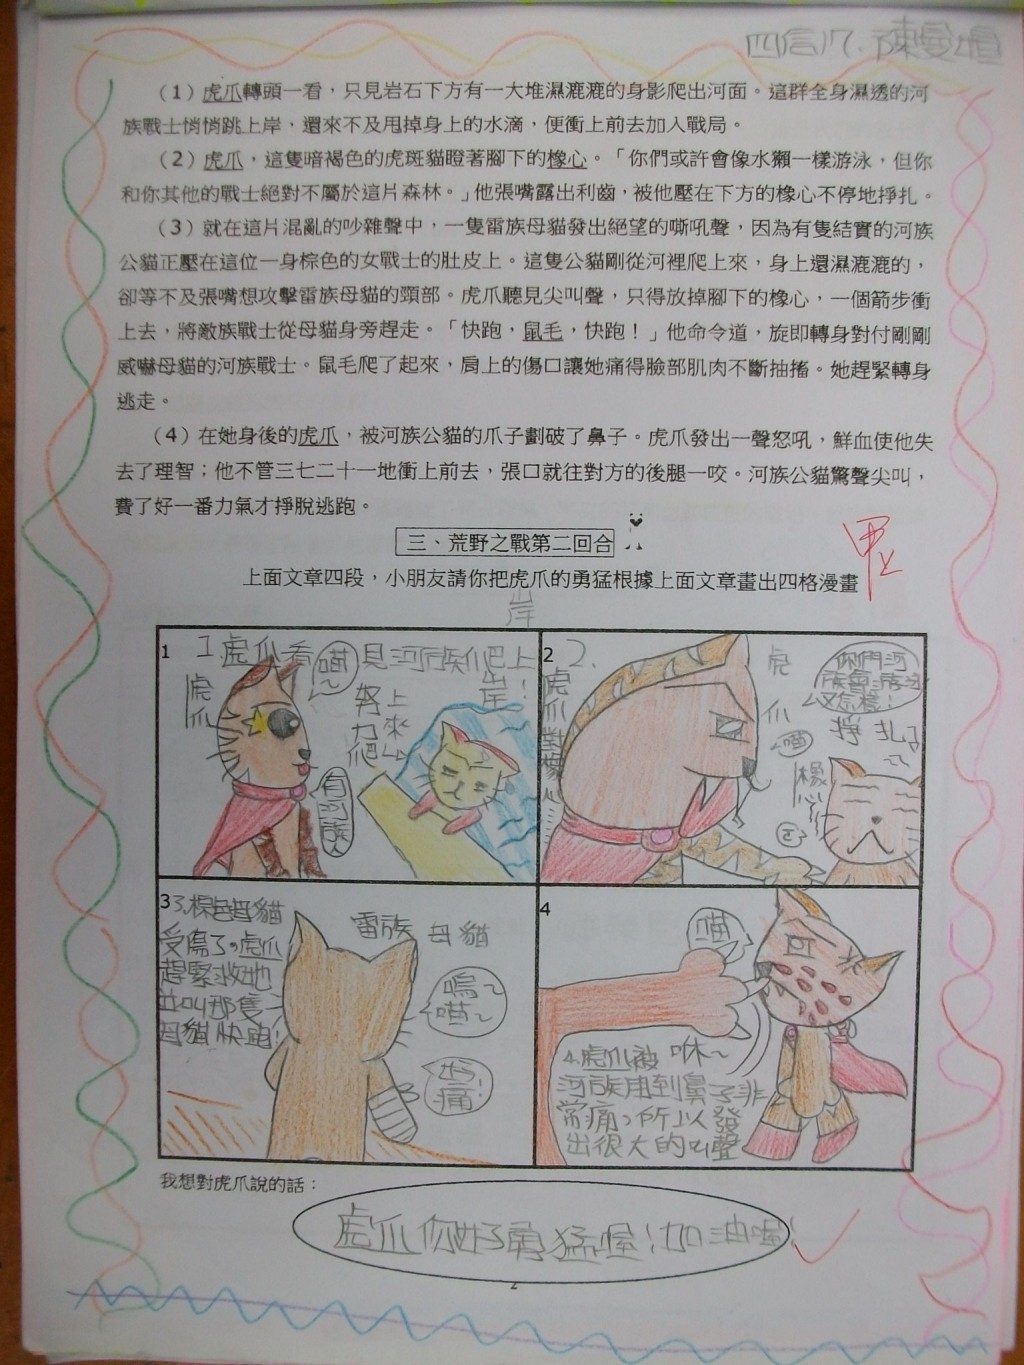 四信17.陳曼
（1）虎爪轉頭一看，只見岩石下方有一大堆濕漉漉的身影爬出河面。這群全身濕透的河
族戰士悄悄跳上岸，還來不及甩掉身上的水滴，便衝上前去加入戰局。
（2）虎爪，這隻暗褐色的虎斑貓瞪著腳下的橡心。「你們或許會像水獺一樣游泳，但你
和你其他的戰士絕對不屬於這片森林。」他張嘴露出利齒，被他壓在下方的橡心不停地掙扎。
（3）就在這片混亂的吵雜聲中，一隻雷族母貓發出絕望的嘶吼聲，因為有隻結實的河族
公貓正壓在這位一身棕色的女戰士的肚皮上。這隻公貓剛從河裡爬上來，身上還濕漉漉的，
卻等不及張嘴想攻擊雷族母貓的頸部。虎爪聽見尖叫聲，只得放掉腳下的橡心，一個箭步衝
上去，將敵族戰士從母貓身旁趕走。「快跑，鼠毛，快跑！」他命令道，旋即轉身對付剛剛
威嚇母貓的河族戰士。鼠毛爬了起來，肩上的傷口讓她痛得臉部肌肉不斷抽搐。她趕緊轉身
逃走。
（4）在她身後的虎爪，被河族公貓的爪子劃破了鼻子。虎爪發出一聲怒吼，鮮血使他失
去了理智；他不管三七二十一地衝上前去，張口就往對方的後腿一咬。河族公貓驚聲尖叫，
費了好一番力氣才掙脫逃跑。
三、荒野之戰第二回合
甲上
上面文章四段，小朋友請你把虎爪的勇猛根據上面文章畫出四格漫畫
岸
1
1.虎爪看見河族爬上岸！
喵~
虎爪
努力爬上來
有河族
2
2.
虎爪對橡心
虎爪
你們河族會游泳又怎樣！
喵
掙扎
橡心
3
3.棕色母貓
受傷了。虎爪
趕緊救她
並叫那隻
母貓快跑！
雷族母貓
嗚~喵~
好痛！
4
喵
4.虎爪被咻~
河族用到鼻子非
常痛，所以發
出很大的叫聲
我想對虎爪說的話：
虎爪你好勇猛喔！加油喔！
2